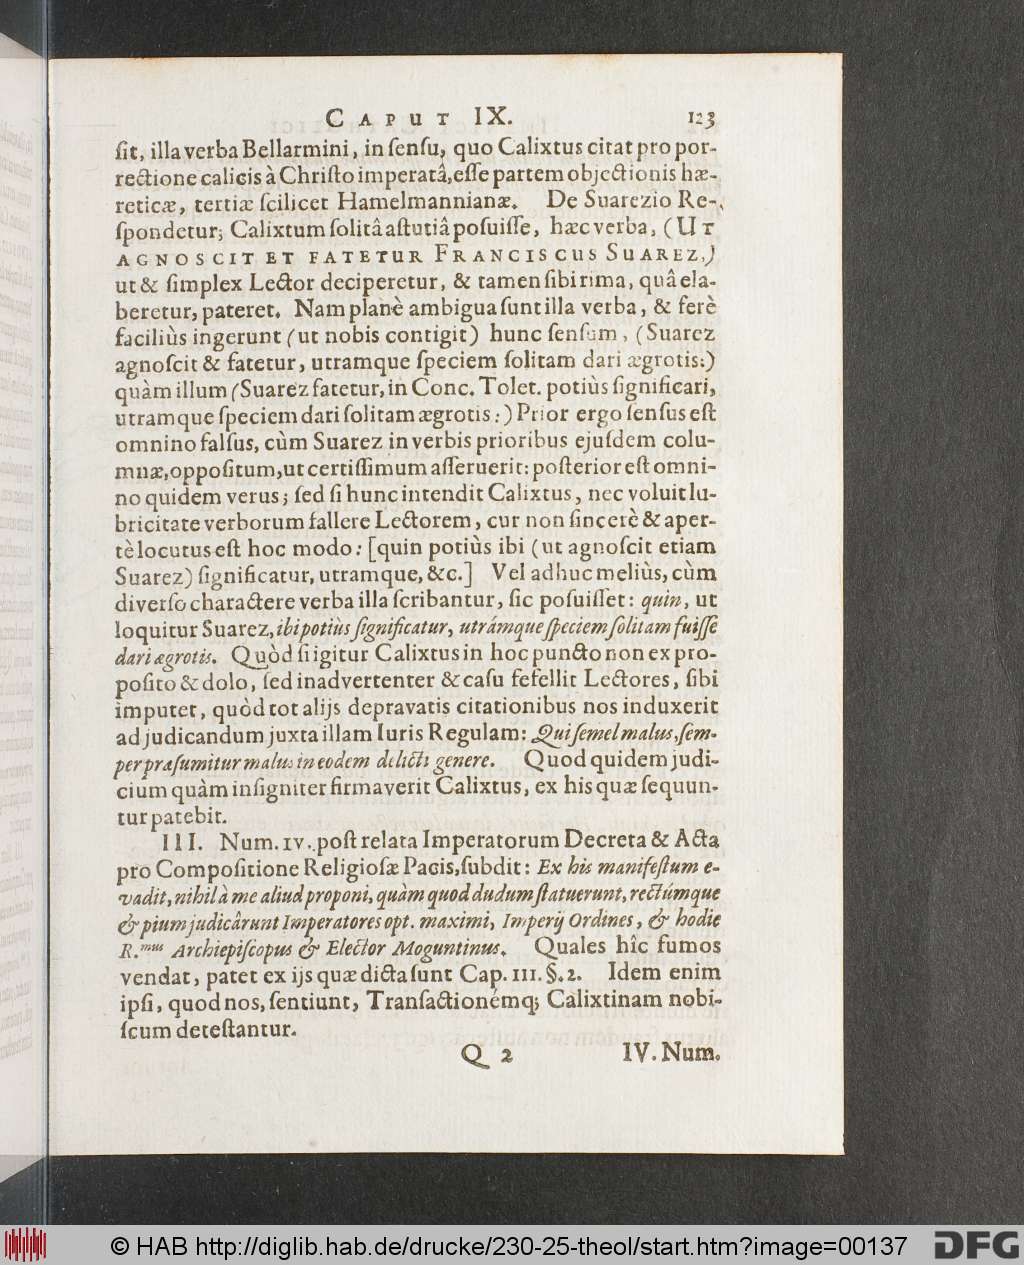 CAPUT IX. 123
ſit, illa verba Bellarmini, in ſenſu, quo Calixtus citat pro por-
rectione calicis à Chriſto imperatâ, eſſe partem objectionis hæ-
reticæ, tertiæ ſcilicet Hamelmannianæ. De Suarezio Re-
ſpondetur; Calixtum ſolitâ aſtutiâ poſuiſſe, hæc verba, (UT
AGNOSCIT ET FATETUR FRANCISCUS SUAREZ,)
ut & ſimplex Lector deciperetur, & tamen ſibi rima, quâ ela-
beretur, pateret. Nam planè ambigua ſunt illa verba, & ferè
faciliùs ingerunt (ut nobis contigit) hunc ſenſum, (Suarez
agnoſcit & fatetur, utramque ſpeciem ſolitam dari ægrotis:)
quàm illum (Suarez fatetur, in Conc. Tolet. potiùs ſignificari,
utramque ſpeciem dari ſolitam ægrotis:) Prior ergo ſenſus eſt
omnino falſus, cùm Suarez in verbis prioribus ejuſdem colu-
mnæ, oppoſitum, ut certiſſimum aſſeruerit: poſterior eſt omni-
no quidem verus; ſed ſi hunc intendit Calixtus, nec voluit lu-
bricitate verborum fallere Lectorem, cur non ſincerè & aper-
tè locutus eſt hoc modo: [quin potiùs ibi (ut agnoſcit etiam
Suarez) ſignificatur, utramque, &c.] Vel adhuc meliùs, cùm
diverſo charactere verba illa ſcribantur, ſic poſuiſſet: quin, ut
loquitur Suarez, ibi potiùs ſignificatur, utrámque ſpeciem ſolitam fuiſſe
dari ægrotis. Quòd ſi igitur Calixtus in hoc puncto non ex pro-
poſito & dolo, ſed inadvertenter & caſu fefellit Lectores, ſibi
imputet, quòd tot alijs depravatis citationibus nos induxerit
ad judicandum juxta illam Iuris Regulam: Qui ſemel malus, ſem-
per præſumitur malus in eodem delicti genere. Quod quidem judi-
cium quàm inſigniter firmaverit Calixtus, ex his quæ ſequun-
tur patebit.
III. Num. IV. poſt relata Imperatorum Decreta & Acta
pro Compoſitione Religioſæ Pacis, ſubdit: Ex his manifeſtum e-
vadit, nihil à me aliud proponi, quàm quod dudum ſtatuerunt, rectúmque
& pium judicârunt Imperatores opt. maximi, Imperij Ordines, & hodie
R.mus Archiepiſcopus & Elector Moguntinus. Quales hîc fumos
vendat, patet ex ijs quæ dicta ſunt Cap. III. §. 2. Idem enim
ipſi, quod nos, ſentiunt, Tranſactionémq; Calixtinam nobi-
ſcum deteſtantur.
Q 2 IV. Num.
© HAB http://diglib.hab.de/drucke/230-25-theol/start.htm?image=00137 DFG